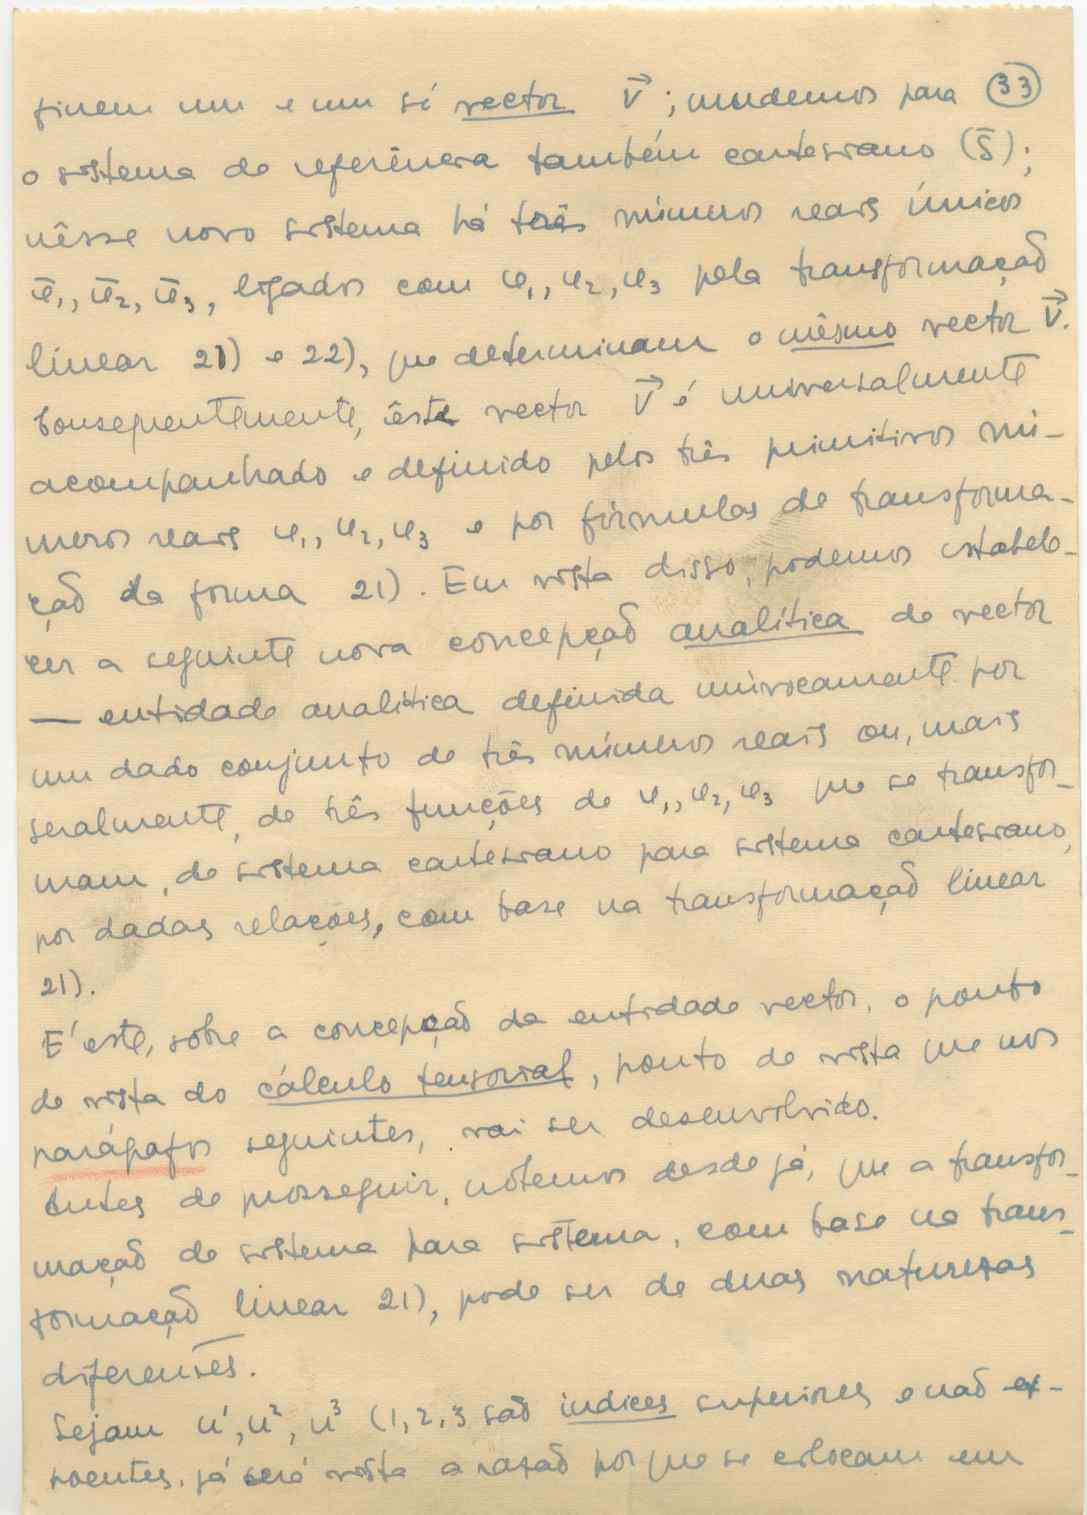 finem um e um só vector V⃗ ; mudemos para (33)
o sistema de referência também cartesiano (S̄);
nêsse novo sistema há três números reais únicos
φ̄₁, φ̄₂, φ̄₃, ligados com φ₁, φ₂, φ₃ pela transformação
linear 21) e 22), que determinam o mêsmo vector V⃗.
Consequentemente, êste vector V⃗ é universalmente
acompanhado e definido pelos três primitivos nú-
meros reais φ₁, φ₂, φ₃ e por fórmulas de transforma-
ção da forma 21). Em vista disso, podemos estabele-
cer a seguinte nova concepção analítica de vector
— entidade analítica definida univocamente por
um dado conjunto de três números reais ou, mais
geralmente, de três funções de φ₁, φ₂, φ₃ que se transfor-
mam, de sistema cartesiano para sistema cartesiano,
por dadas relações, com base na transformação linear
21).
E' este, sôbre a concepção da entidade vector, o ponto
de vista do cálculo tensorial, ponto de vista que nos
parágafos seguintes, vai ser desenvolvido.
Antes de prosseguir, notemos desde já, que a transfor-
mação de sistema para sistema, com base na trans-
formação linear 21), pode ser de duas naturezas
diferentes.
Sejam u¹, u², u³ (1, 2, 3 são índices superiores e não ex-
poentes, já será vista a razão por que se colocam em